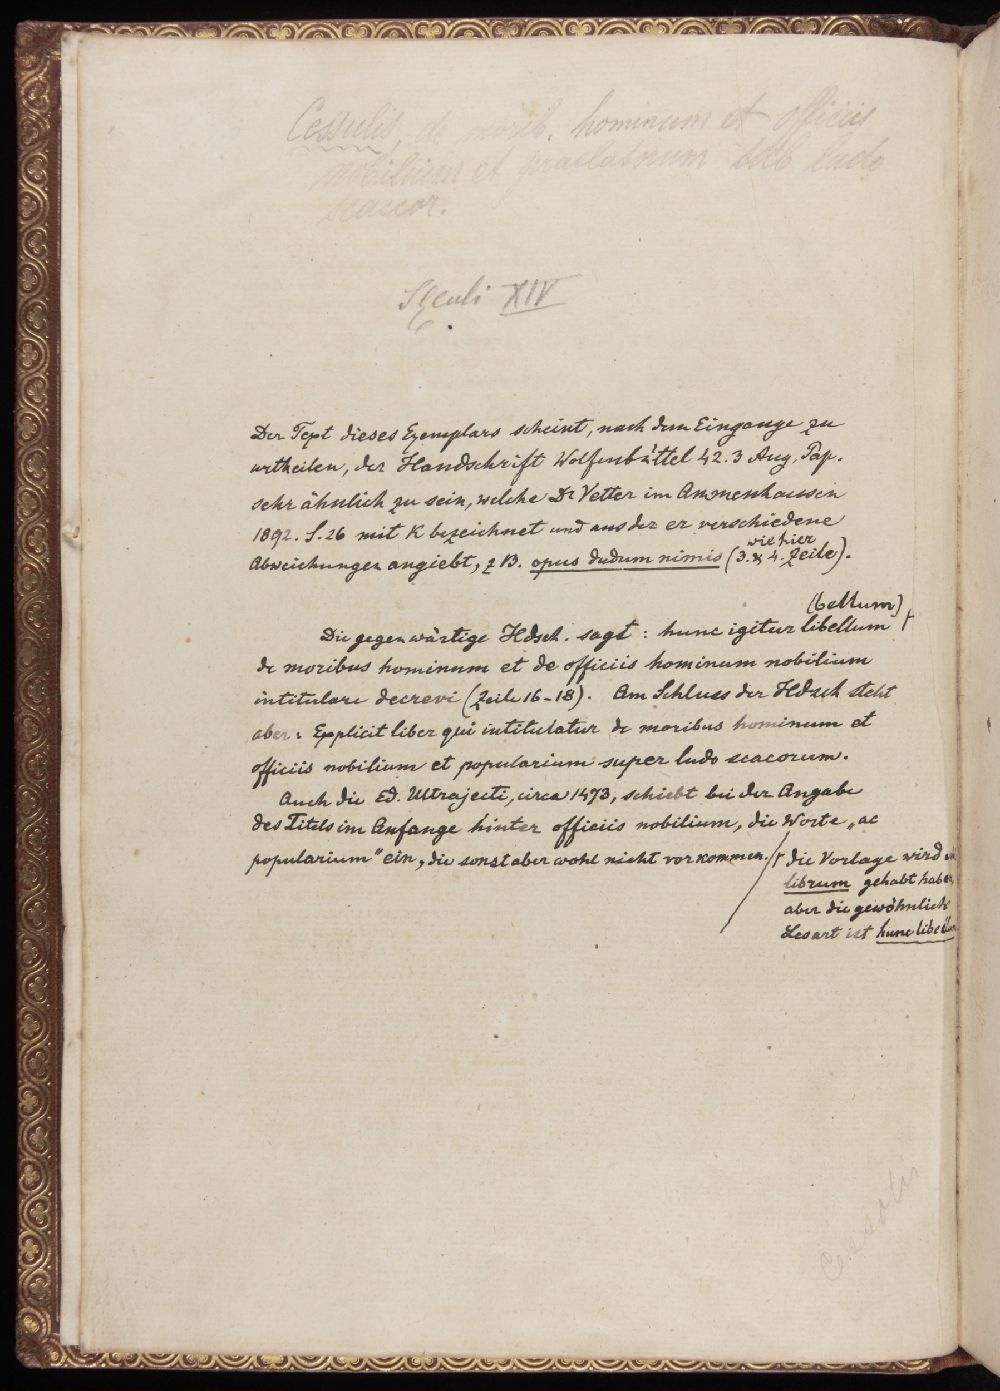 Cessulis, de morib. hominum et officiis
nobilium et praelatorum sub ludo
scaccor.
Sęculi XIV
Der Text dieses Exemplars scheint, nach dem Eingange zu
urtheilen, der Handschrift Wolfenbüttel 42.3 Aug. Pap.
sehr ähnlich zu sein, welche Dr Vetter im Ammenhausen
1892. S. 26 mit K bezeichnet und aus der er verschiedene
wie hier
Abweichungen angiebt, z B. opus dudum nimis (3. & 4. Zeile).
(bellum)
Die gegenwärtige Hdsch. sagt: hunc igitur libellum †
de moribus hominum et de officiis hominum nobilium
intitulare decrevi (Zeile 16-18). Am Schluss der Hdsch steht
aber: Explicit liber qui intitulatur de moribus hominum et
officiis nobilium et popularium super ludo scacorum.
Auch die Ed. Ultrajecti, circa 1473, schiebt bei der Angabe
des Titels im Anfange hinter officiis nobilium, die Worte „ac
popularium" ein, die sonst aber wohl nicht vorkommen.
† die Vorlage wird
librum gehabt haben
aber die gewöhnliche
Lesart ist hunc libellum
Cessolis